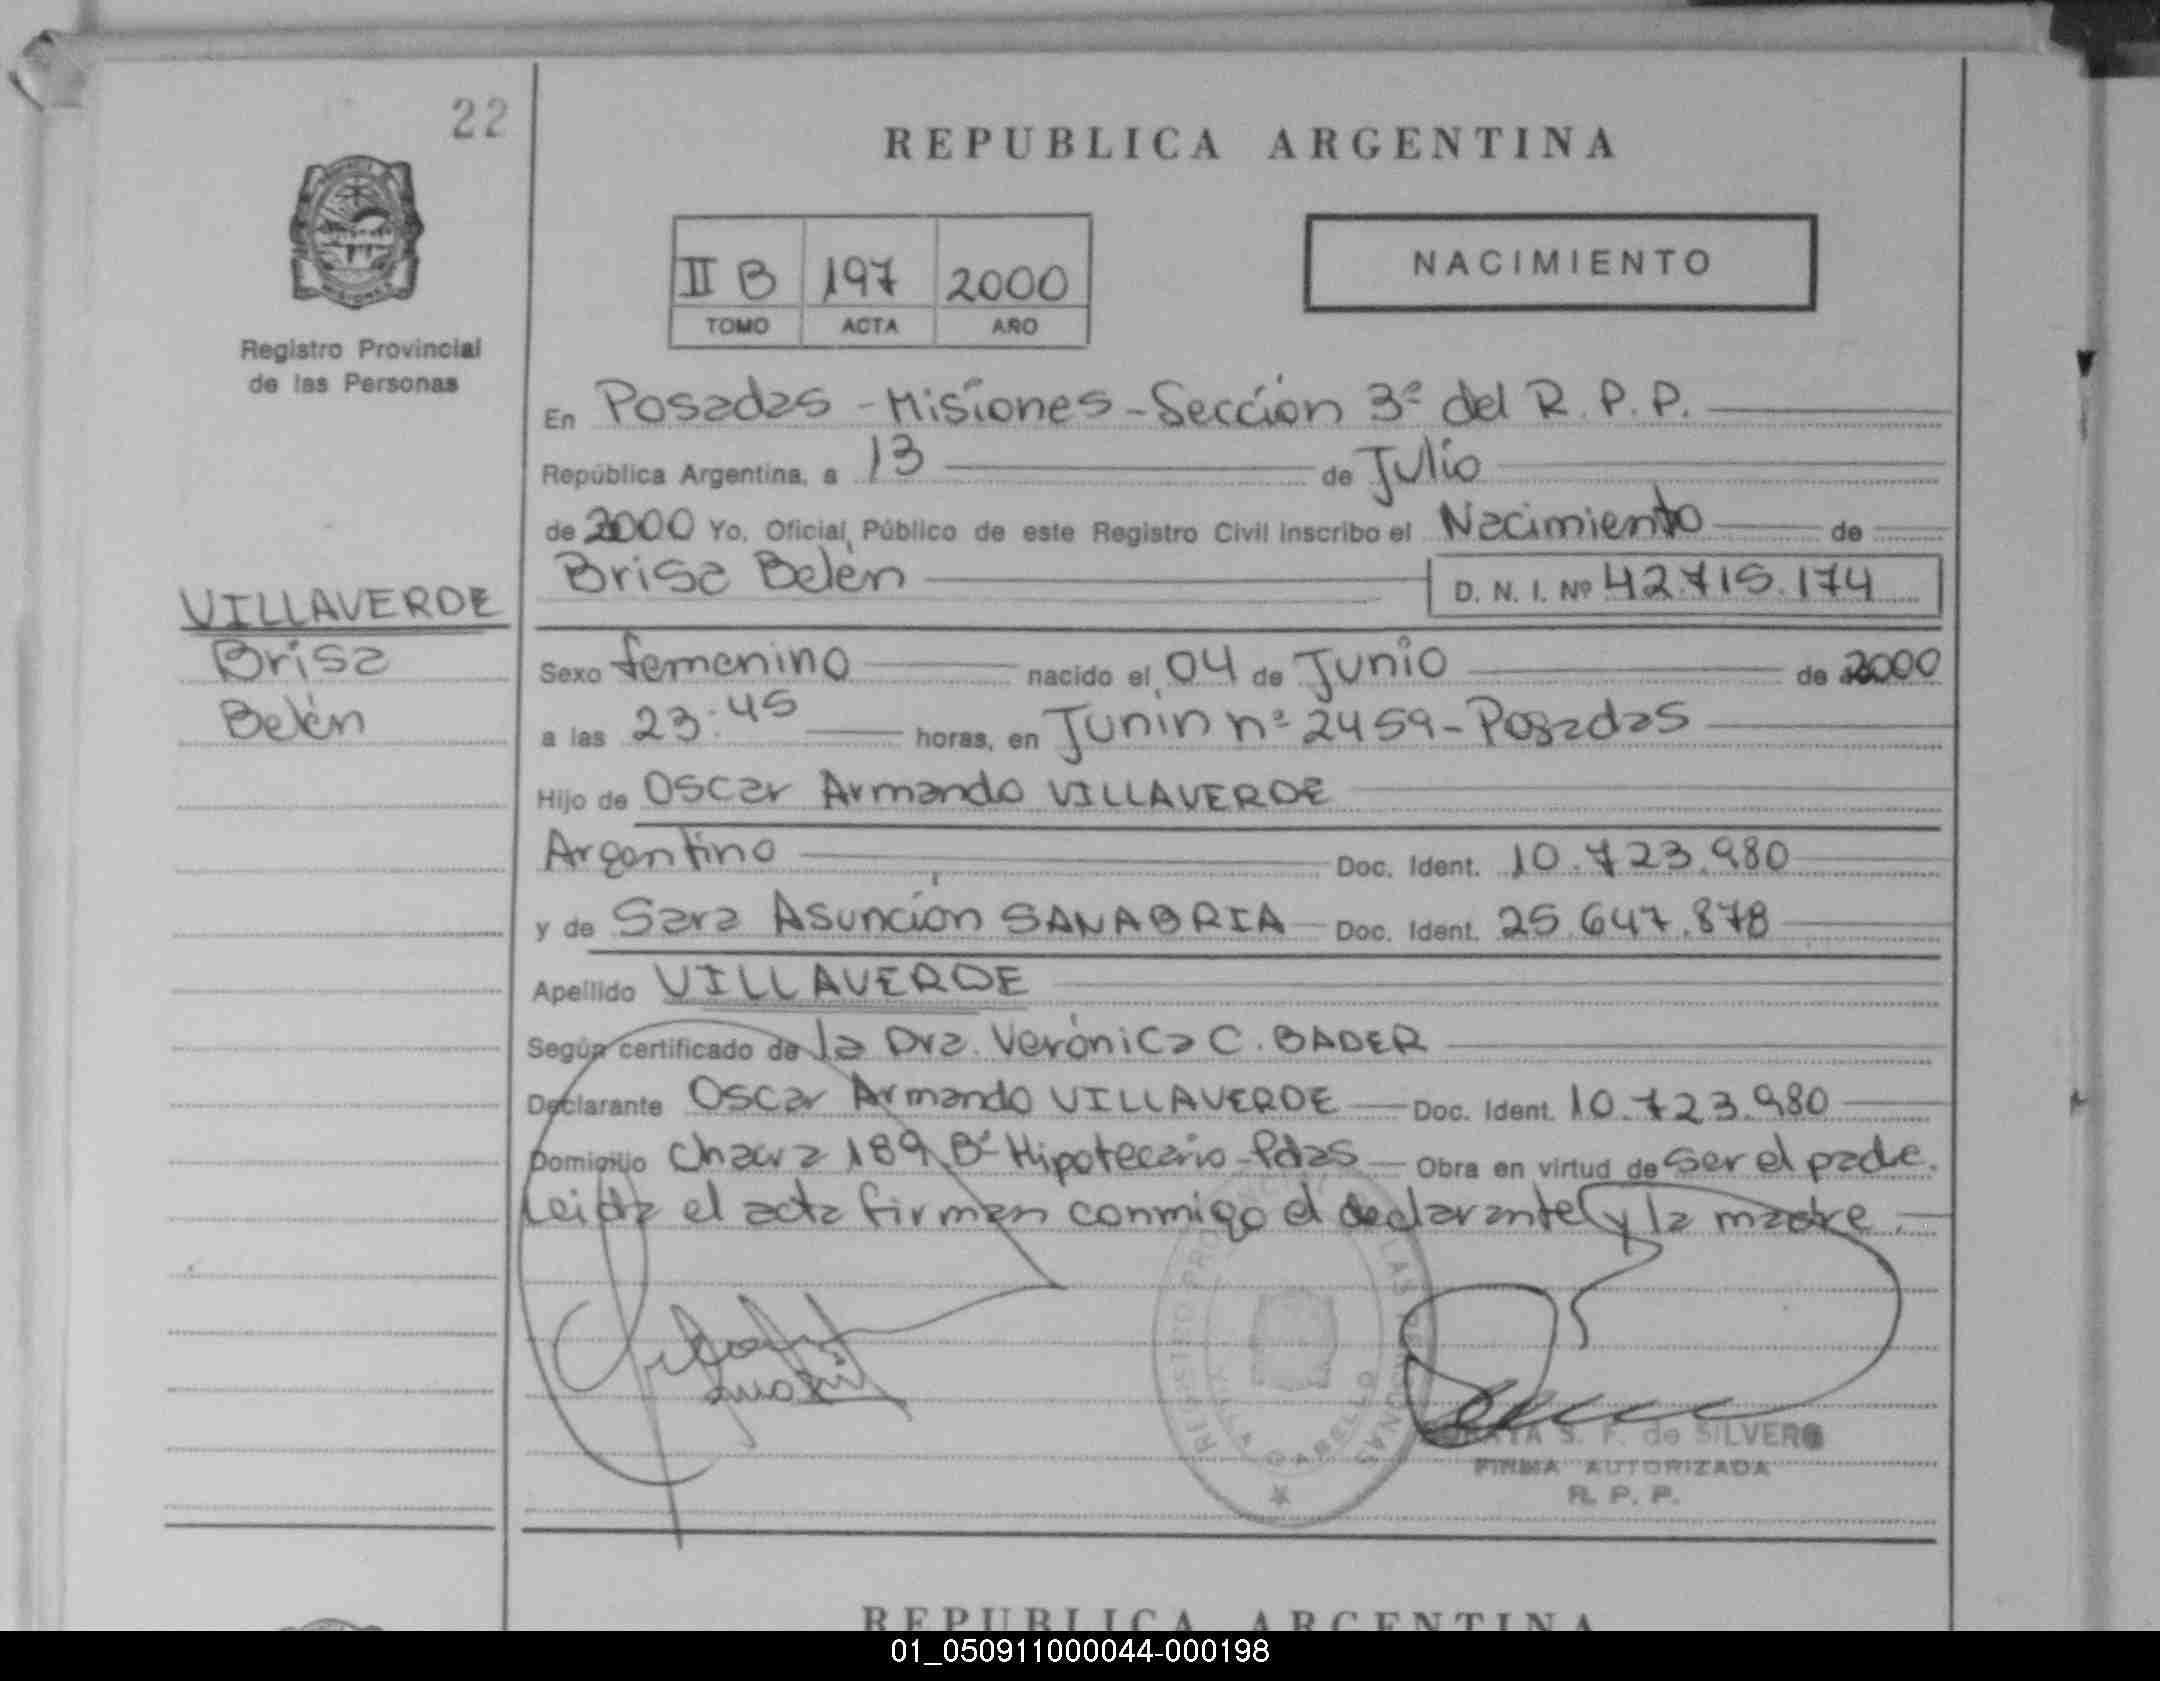 22
REPUBLICA ARGENTINA
Registro Provincial
de las Personas
II B 197 2000
TOMO ACTA AÑO
NACIMIENTO
En Posadas - Misiones - Sección 3ª del R.P.P.
República Argentina, a 13 de Julio
de 2000 Yo, Oficial Público de este Registro Civil inscribo el Nacimiento de
Brisa Belén D. N. I. Nº 42.715.174
VILLAVERDE
Brisa
Belén
Sexo femenino nacido el 04 de Junio de 2000
a las 23:45 horas, en Junín nº 2459 - Posadas
Hijo de Oscar Armando VILLAVERDE
Argentino Doc. Ident. 10.723.980
y de Sara Asunción SANABRIA Doc. Ident. 25.647.878
Apellido VILLAVERDE
Según certificado de la Dra. Verónica C. BADER
Declarante Oscar Armando VILLAVERDE Doc. Ident. 10.723.980
Domicilio Chacra 189 Bº Hipotecario - Pdas Obra en virtud de ser el padre.
Leida el acta firman conmigo el declarante y la madre.
REGISTRO PROVINCIAL DE LAS PERSONAS
VILLA CABELLO
S. F. de SILVERO
FIRMA AUTORIZADA
R. P. P.
REPUBLICA ARGENTINA
01_050911000044-000198